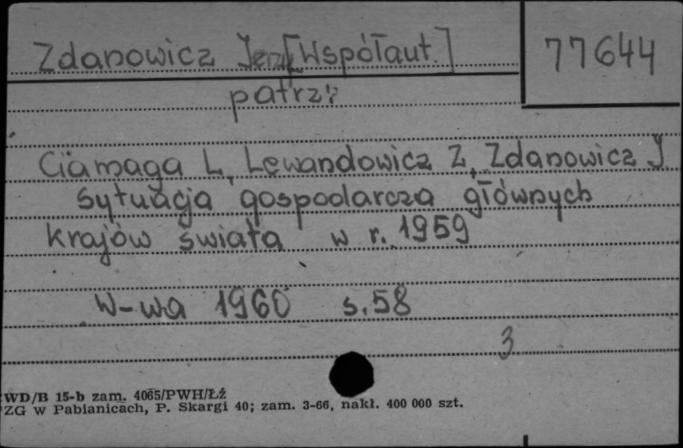 Zdanowicz Jerzy [Współaut.]
77644
patrz:
Ciamaga L, Lewandowicz Z, Zdanowicz J
Sytuacja gospodarcza głównych
krajów świata w r. 1959
W-wa 1960 s. 58
3
WD/B 15-b zam. 4065/PWH/ŁŹ
ZG w Pabianicach, P. Skargi 40; zam. 3-66, nakł. 400 000 szt.